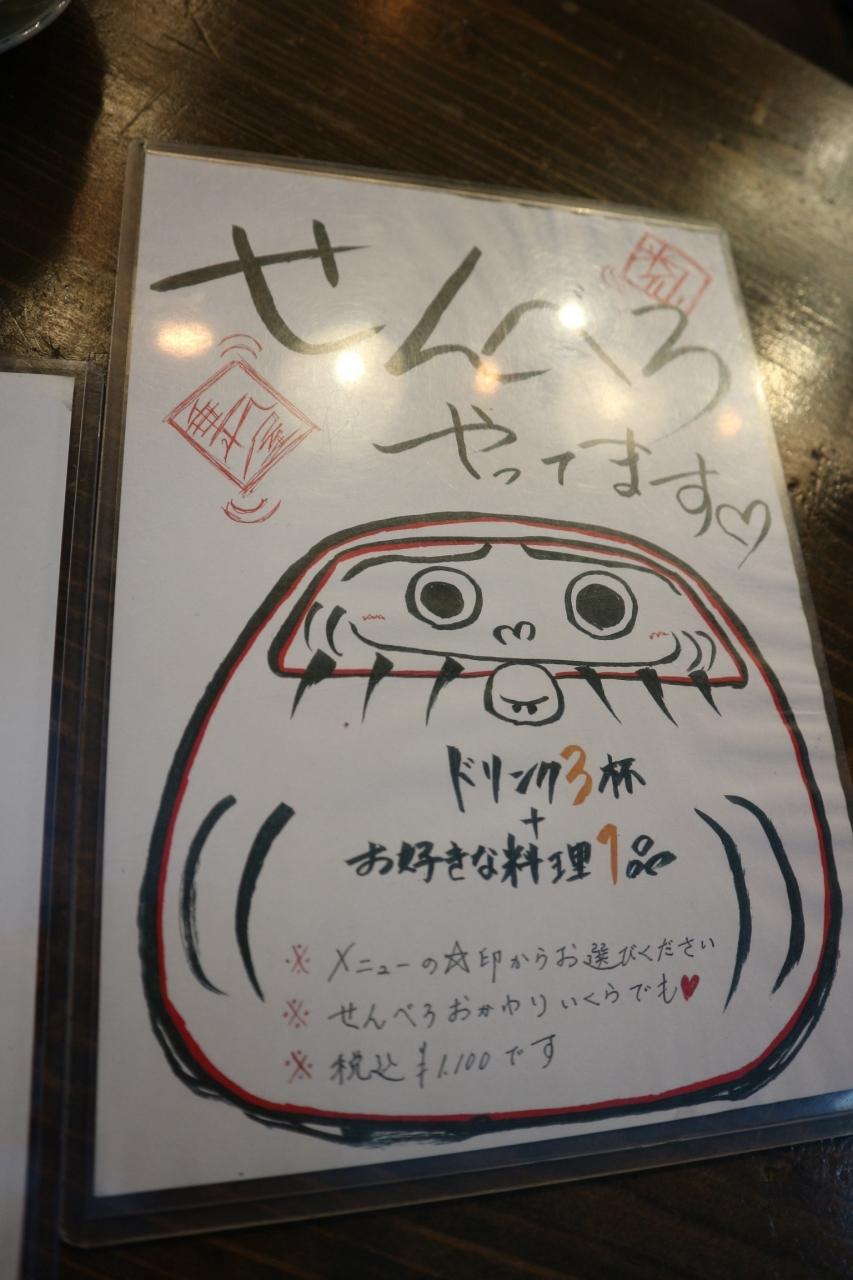 せんべろ
やってます♡
ドリンク3杯
+
お好きな料理1品
※ メニューの☆印からお選びください
※ せんべろおかわりいくらでも♥
※ 税込¥1,100です